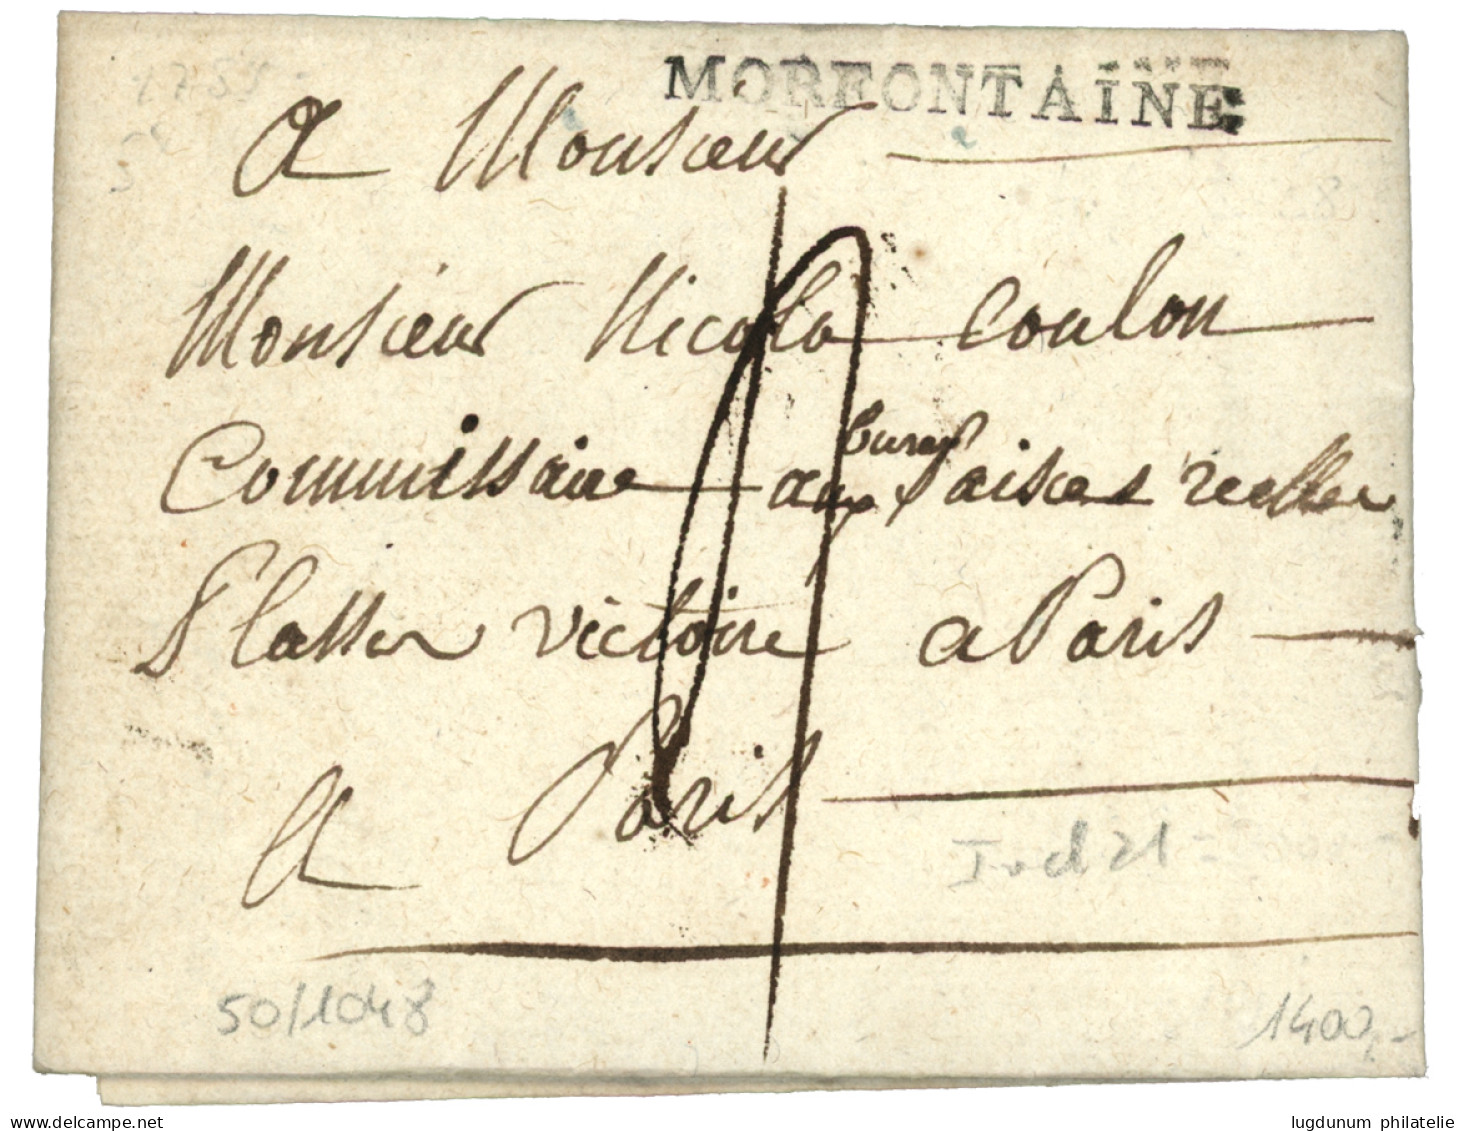 MORFONTAINE
a Monsieur
Monsieur Nicola Coulon
bureau
Commissaire aux Saises reelles
Place victoire a Paris
a Paris
Ind 21 =
50/1048
1400,-
delcampe.net
lugdunum philatelie